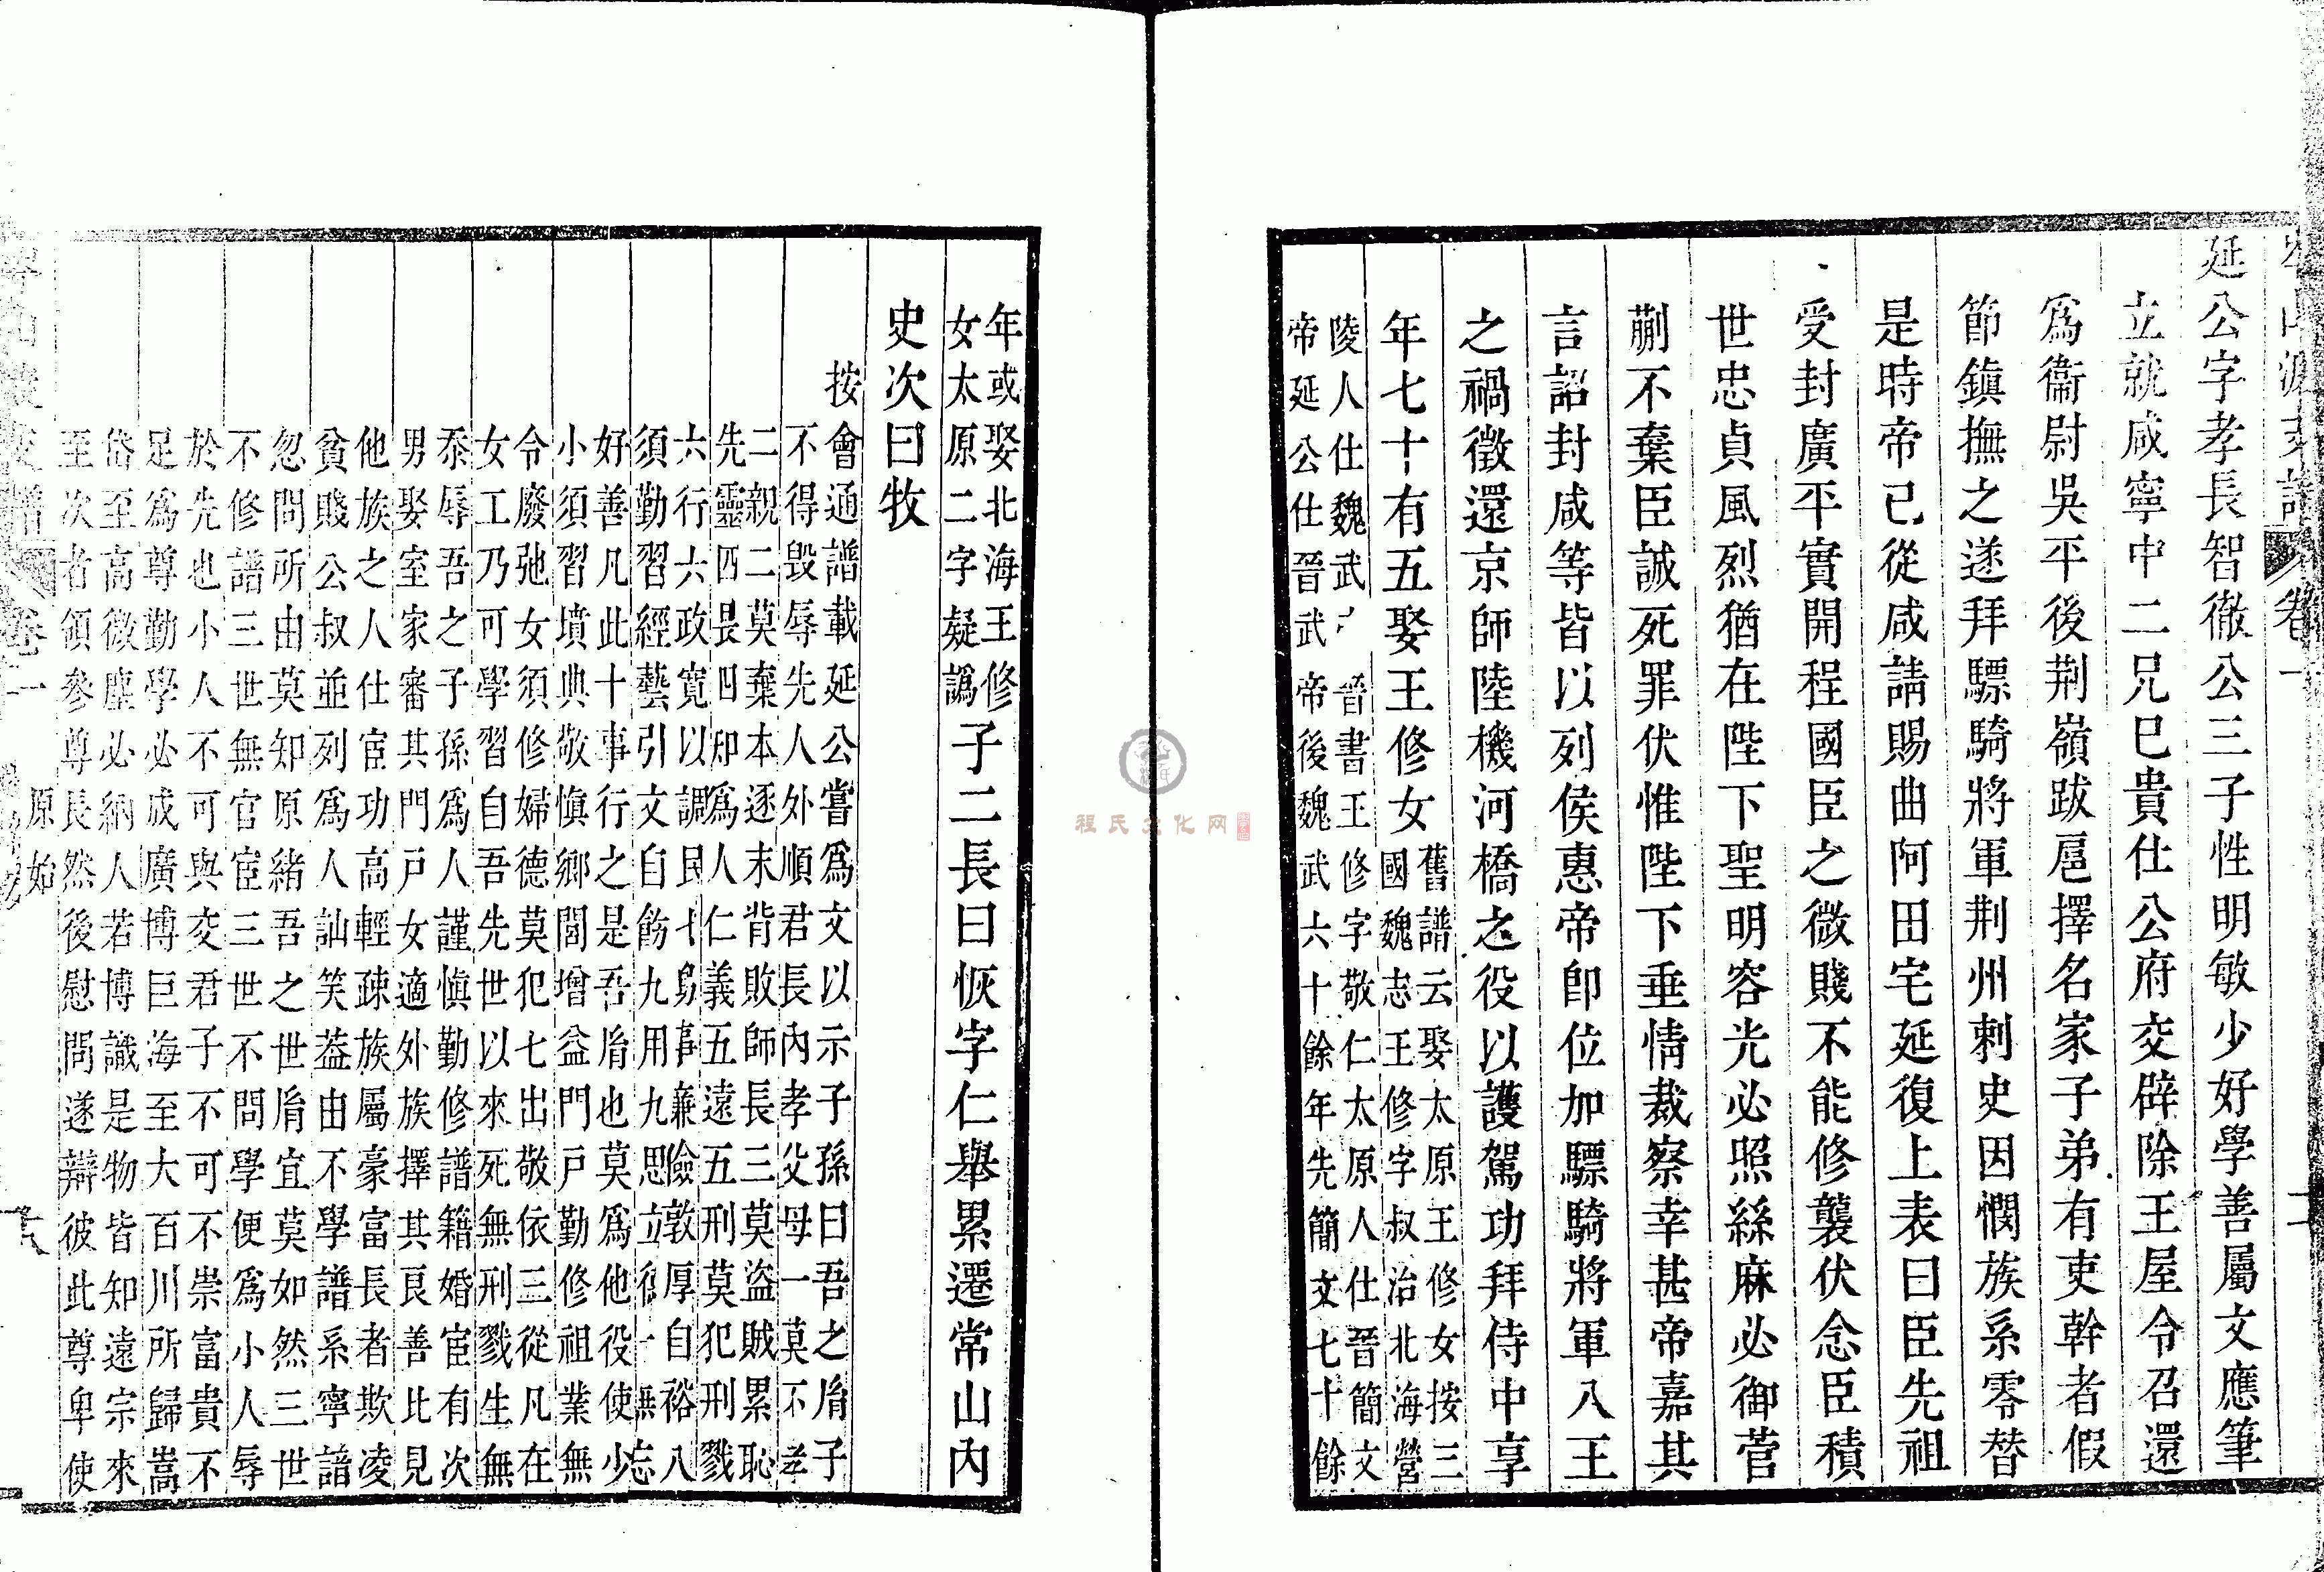 支譜 卷一
延公字孝長智徹公三子性明敏少好學善屬文應筆
立就咸寧中二兄已貴仕公府交辟除王屋令召還
爲衞尉吳平後荆嶺跋扈擇名家子弟有吏幹者假
節鎮撫之遂拜驃騎將軍荆州刺史因憫族系零替
是時帝已從咸請賜曲阿田宅延復上表曰臣先祖
受封廣平實開程國臣之微賤不能修襲伏念臣積
世忠貞風烈猶在陛下聖明容光必照絲麻必御菅
蒯不棄臣誠死罪伏惟陛下垂情裁察幸甚帝嘉其
言詔封咸等皆以列侯惠帝卽位加驃騎將軍八王
之禍徵還京師陸機河橋之役以護駕功拜侍中享
年七十有五娶王修女
舊譜云娶太原王修女按三
國魏志王修字叔治北海營
陵人仕魏武 晉書王修字敬仁太原人仕晉簡文
帝延公仕晉武帝後魏武六十餘年先簡文七十餘
年或娶北海王修
女太原二字疑譌
子二長曰恢字仁舉累遷常山內
史次曰牧
按會通譜載延公嘗爲文以示子孫曰吾之胤子
不得毀辱先人外順君長內孝父母一莫不孝
二親二莫棄本逐末背敗師長三莫盜賊累恥
先靈四畏四知爲人仁義五遠五刑莫犯刑戮
六行六政寬以調民七 事兼儉敦厚自裕八
須勤習經藝引文自飭九用九思立 一無忘
好善凡此十事行之是吾胤也莫爲他役使少
小須習墳典敬愼鄉閭增益門戶勤修祖業無
令廢弛女須修婦德莫犯七出敬依三從凡在
女工乃可學習自吾先世以來死無刑戮生無
忝辱吾之子孫爲人謹愼勤修譜籍婚宦有次
男娶室家審其門戶女適外族擇其良善比見
他族之人仕宦功高輕疎族屬豪富長者欺凌
貧賤公叔並列爲人訕笑葢由不學譜系寧諳
忽問所由莫知原緒吾之世胤宜莫如然三世
不修譜三世無官宦三世不問學便爲小人辱
於先也小人不可與交君子不可不崇富貴不
足爲尊勤學必成廣博巨海至大百川所歸嵩
岱至高微塵必納人若博識是物皆知遠宗來
至次者領參尊長然後慰問遂辯彼此尊卑使
原始
支譜 卷一
程氏文化网